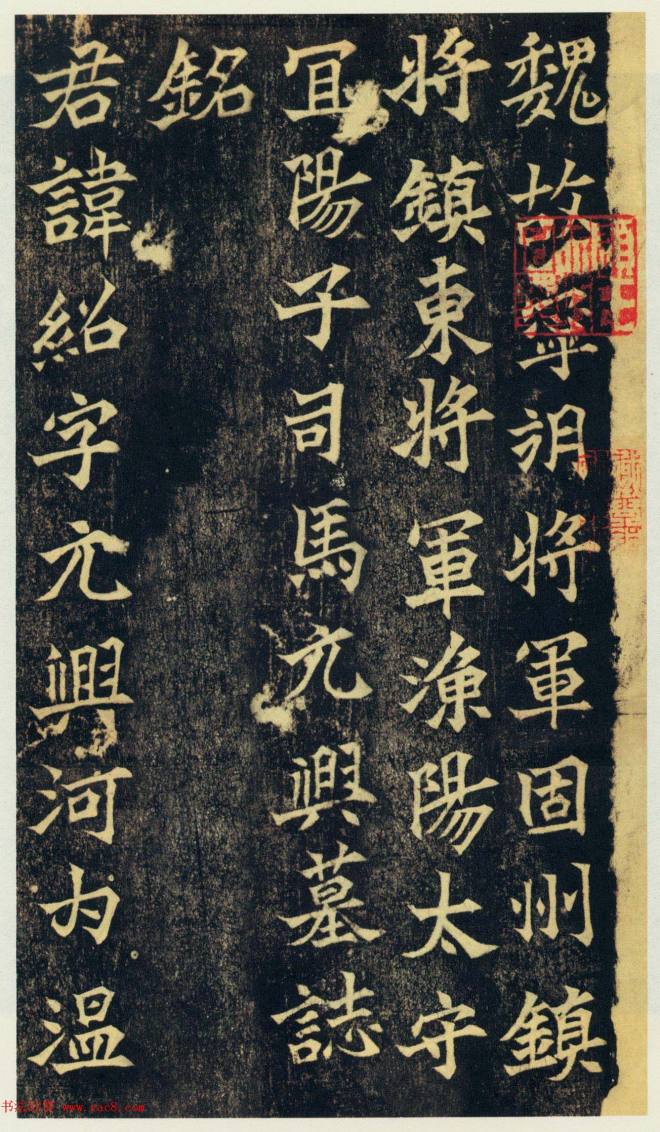 魏故寧朔将軍固州鎮
将鎮東将軍漁陽太守
宜陽子司馬元興墓誌
銘
君諱紹字元興河内温
www.rac8.com